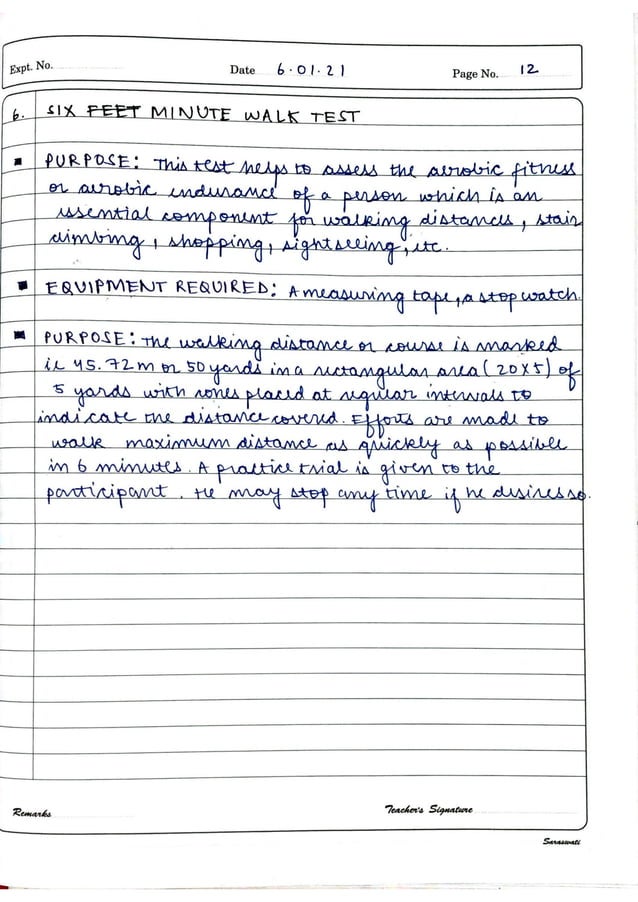 Expt. No.
Date 6.01.21
Page No. 12
6. SIX FEET MINUTE WALK TEST
PURPOSE: This test helps to assess the aerobic fitness
or aerobic endurance of a person which is an
essential component for walking distances, stair
climbing, shopping, sightseeing, etc.
EQUIPMENT REQUIRED: A measuring tape, a stop watch.
PURPOSE: The walking distance or course is marked
ie 45.72m or 50 yards in a rectangular area (20x5) of
5 yards with cones placed at regular intervals to
indicate the distance covered. Efforts are made to
walk maximum distance as quickly as possible
in 6 minutes. A practice trial is given to the
participant. He may stop any time if he desires so.
Remarks
Teacher's Signature
Saraswati